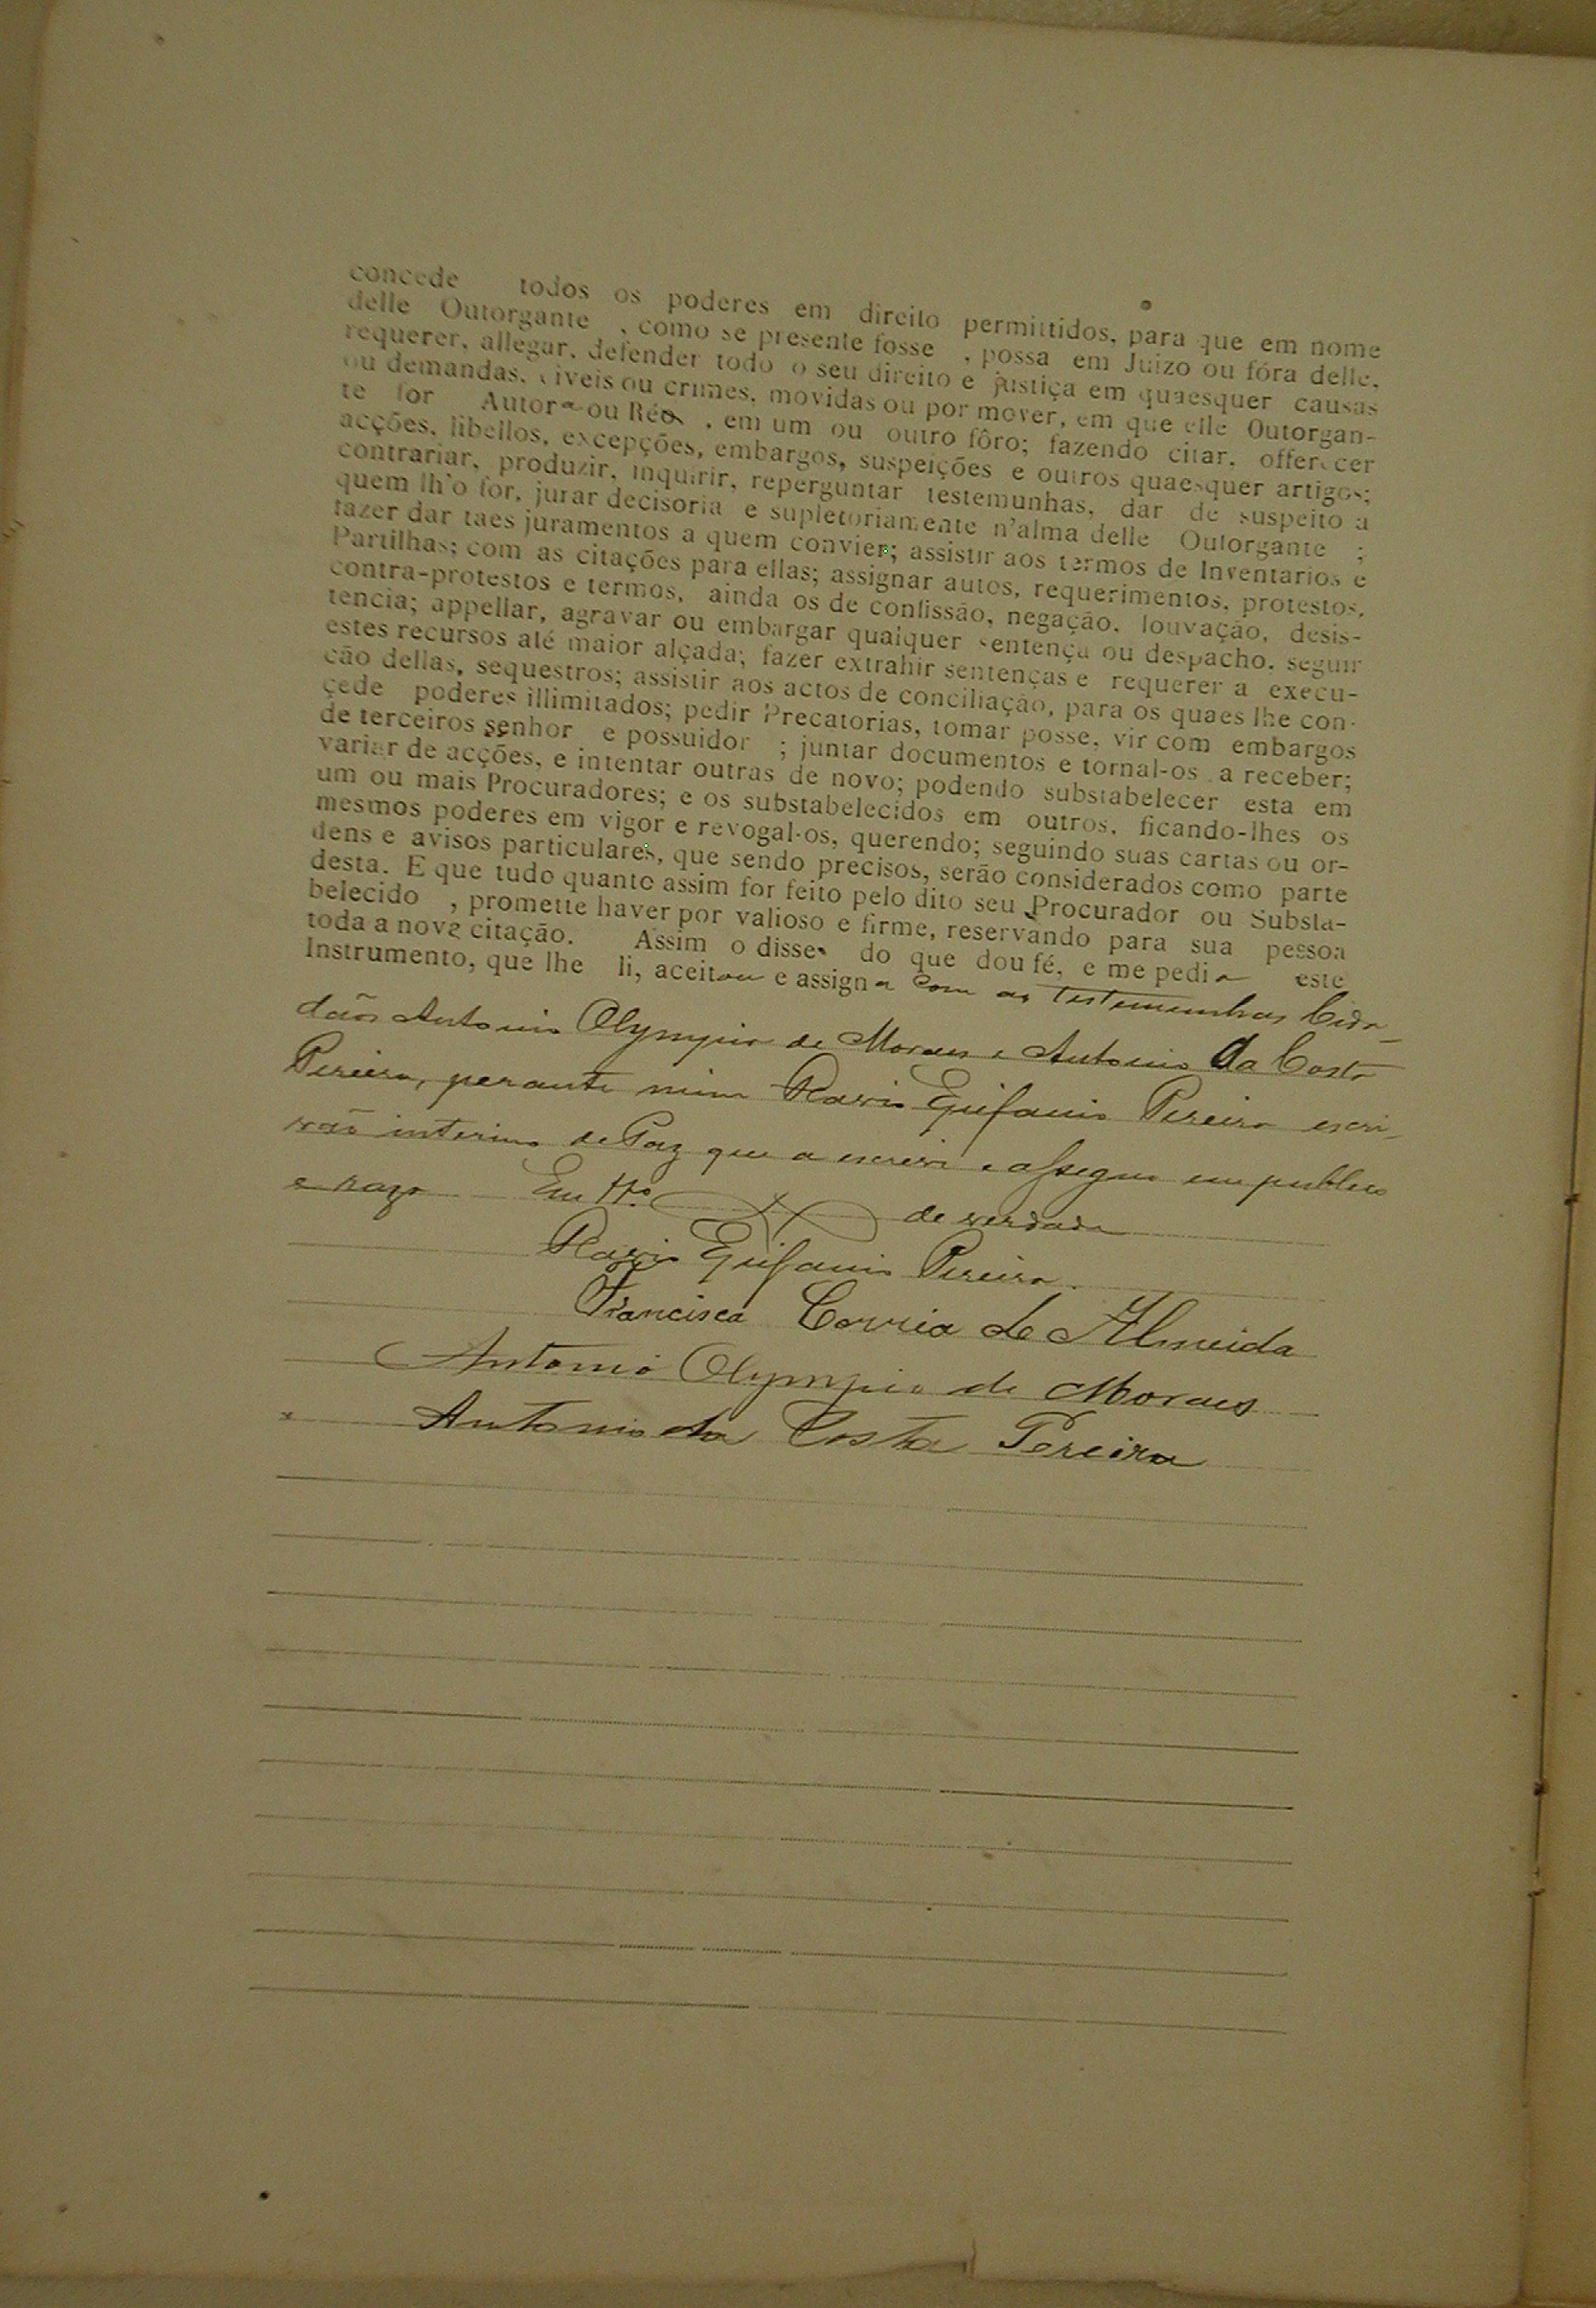 concede todos os poderes em direito permittidos, para que em nome
delle Outorgante , como se presente fosse , possa em Juizo ou fóra delle,
requerer, allegar, defender todo o seu direito e justiça em quaesquer causas
ou demandas, civeis ou crimes, movidas ou por mover, em que elle Outorgan-
te for Autora ou Réo , em um ou outro fôro; fazendo citar, offerecer
acções, libellos, excepções, embargos, suspeições e outros quaesquer artigos;
contrariar, produzir, inquirir, reperguntar testemunhas, dar de suspeito a
quem lh'o for, jurar decisoria e supletoriamente n'alma delle Outorgante ;
fazer dar taes juramentos a quem convier; assistir aos termos de Inventarios e
Partilhas; com as citações para ellas; assignar autos, requerimentos, protestos,
contra-protestos e termos, ainda os de confissão, negação, louvação, desis-
tencia; appellar, agravar ou embargar qualquer sentença ou despacho, seguir
estes recursos até maior alçada; fazer extrahir sentenças e requerer a execu-
ção dellas, sequestros; assistir aos actos de conciliação, para os quaes lhe con-
cede poderes illimitados; pedir Precatorias, tomar posse, vir com embargos
de terceiros senhor e possuidor ; juntar documentos e tornal-os a receber;
variar de acções, e intentar outras de novo; podendo substabelecer esta em
um ou mais Procuradores; e os substabelecidos em outros, ficando-lhes os
mesmos poderes em vigor e revogal-os, querendo; seguindo suas cartas ou or-
dens e avisos particulares, que sendo precisos, serão considerados como parte
desta. E que tudo quanto assim for feito pelo dito seu Procurador ou Substa-
belecido , promette haver por valioso e firme, reservando para sua pessoa
toda a nova citação. Assim o disse do que dou fé, e me pedio este
Instrumento, que lhe li, aceitou e assigna com as testemunhas Cida-
dãos Antonio Olympio de Moraes e Antonio da Costa
Pereira, perante mim Epifanio Pereira escri-
vão interino de Paz que a escrevi e assigno em publico
e razo Em tto de verdade
Epifanio Pereira
Francisca Correia de Almeida
Antonio Olympio de Moraes
Antonio da Costa Pereira